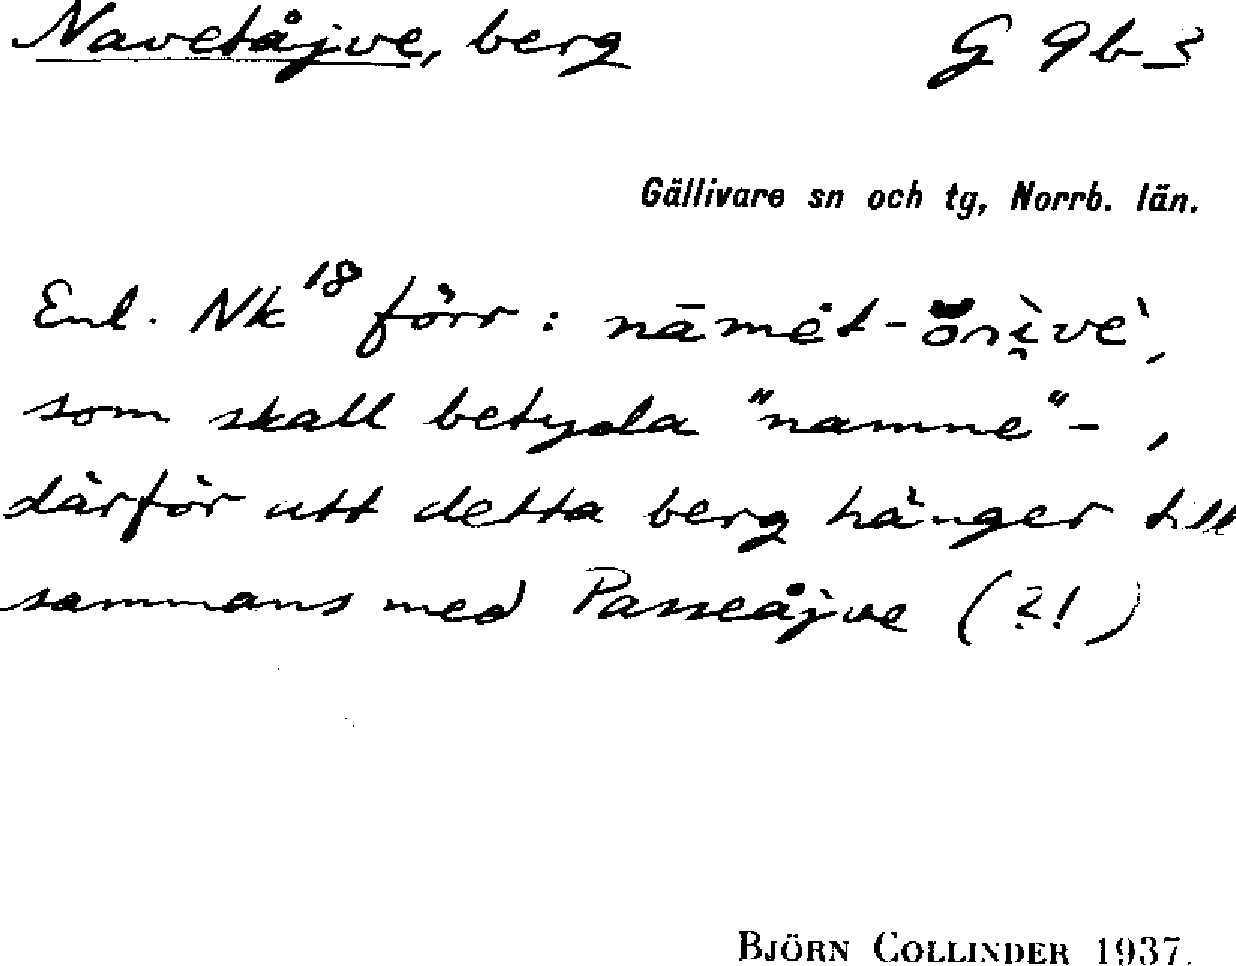 Navetåjve, berg G 9b3
Gällivare sn och tg, Norrb. län.
Enl. Nk¹⁸ förr:
som skall betyda "namne"-,
därför att detta berg hänger till
sammans med Passeåjve (?!)
BJÖRN COLLINDER 1937.